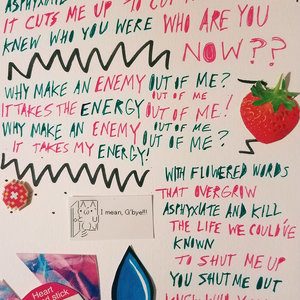 ASPHYXIATE
IT CUTS ME UP TO CUT
KNEW WHO YOU WERE WHO ARE YOU
NOW??
WHY MAKE AN ENEMY OUT OF ME?
OUT OF ME
IT TAKES THE ENERGY OUT OF ME!
OUT OF ME
WHY MAKE AN ENEMY OUT OF ME?
IT TAKES MY ENERGY!
WITH FLOWERED WORDS
THAT OVERGROW
ASPHYXIATE AND KILL
THE LIFE WE COULD'VE
KNOWN
TO SHUT ME UP
YOU SHUT ME OUT
I mean, G'bye!!!
Heart
stick